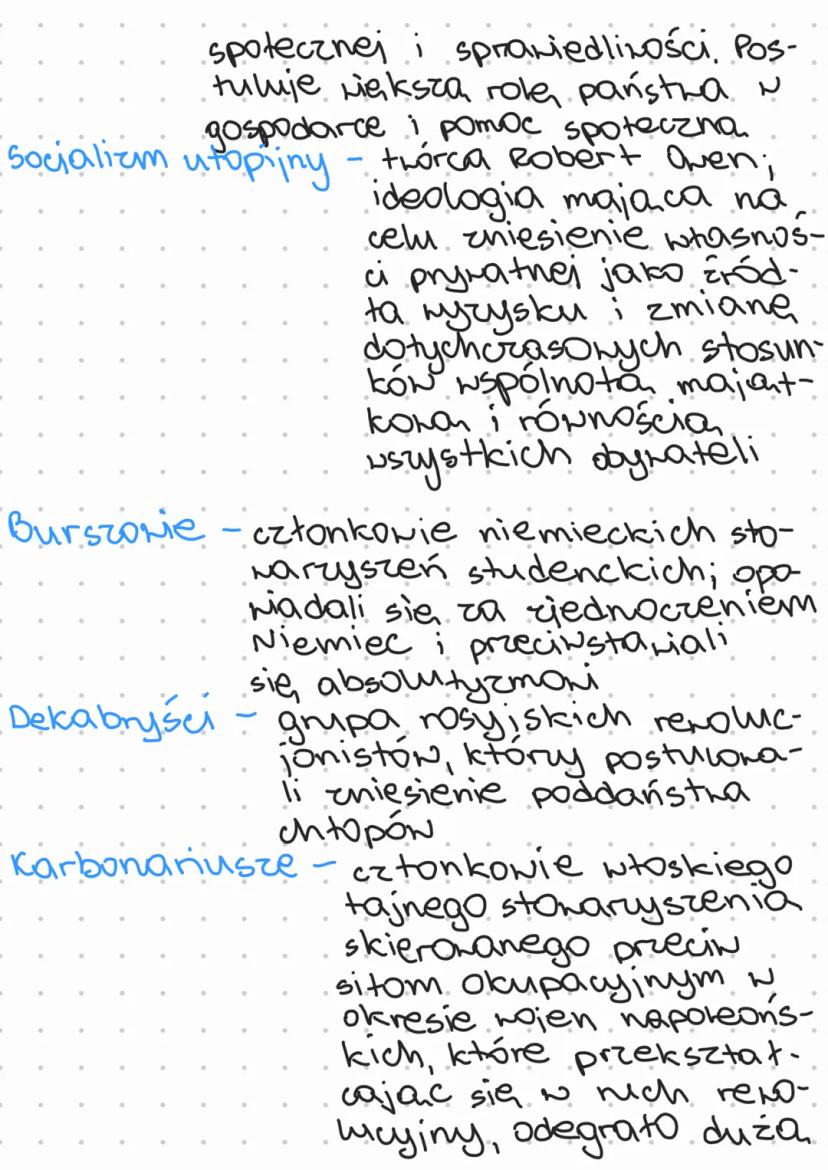 społecznej i sprawiedliwości. Pos-
tuluje większą rolę państwa w
gospodarce i pomoc społeczną
Socjalizm utopijny - twórca Robert Owen;
ideologia mająca na
celu zniesienie własnoś-
ci prywatnej jako źród-
ła wyzysku i zmianę
dotychczasowych stosun-
ków wspólnotą mająt-
kową i równością
wszystkich obywateli
Burszowie - członkowie niemieckich sto-
warzyszeń studenckich; opo-
wiadali się za zjednoczeniem
Niemiec i przeciwstawiali
się absolutyzmowi
Dekabryści - grupa rosyjskich rewoluc-
jonistów, którzy postulowa-
li zniesienie poddaństwa
chłopów
Karbonariusze - członkowie włoskiego
tajnego stowarzyszenia
skierowanego przeciw
siłom okupacyjnym w
okresie wojen napoleońs-
kich, które przekształ-
cając się w ruch rewo-
lucyjny, odegrało dużą